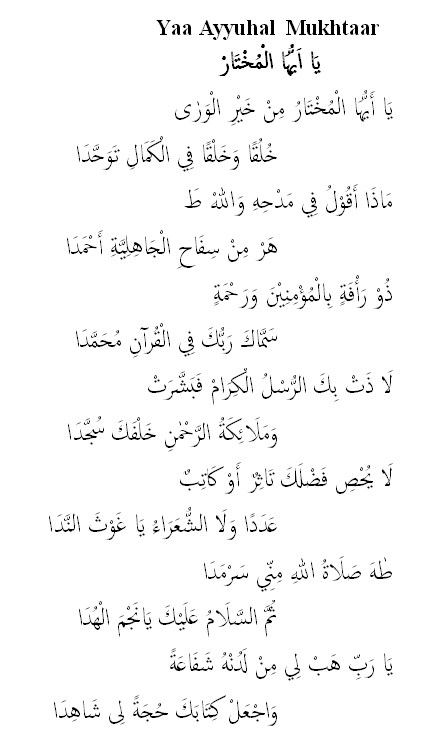 Yaa Ayyuhal Mukhtaar
يَا اَيُّهَا الْمُخْتَارْ
يَا أَيُّهَا الْمُخْتَارُ مِنْ خَيْرِ الْوَرٰى
خُلْقًا وَخَلْقًا فِي الْكَمَالِ تَوَحَّدَا
مَاذَا أَقُوْلُ فِي مَدْحِهِ وَاللهُ طَ
هَرْ مِنْ سِفَاحِ الْجَاهِلِيَّةِ أَحْمَدَا
ذُوْ رَأْفَةٍ بِالْمُؤْمِنِيْنَ وَرَحْمَةٍ
سَمَّاكَ رَبُّكَ فِي الْقُرآنِ مُحَمَّدَا
لَا ذَتْ بِكَ الرُّسْلُ الْكِرَامْ فَبَشَّرَتْ
وَمَلَائِكَةُ الرَّحْمٰنِ خَلْفَكَ سُجَّدَا
لَا يُحْصِ فَضْلَكَ نَاثِرٌ أَوْ كَاتِبٌ
عَدَدًا وَلَا الشُّعَرَاءُ يَا غَوْثَ النَّدَا
طٰهَ صَلَاةُ اللهِ مِنِّي سَرْمَدَا
ثُمَّ السَّلَامُ عَلَيْكَ يَانَجْمَ الْهُدَا
يَا رَبِّ هَبْ لِي مِنْ لَدُنْهُ شَفَاعَةً
وَاجْعَلْ كِتَابَكَ حُجَةً لِى شَاهِدَا